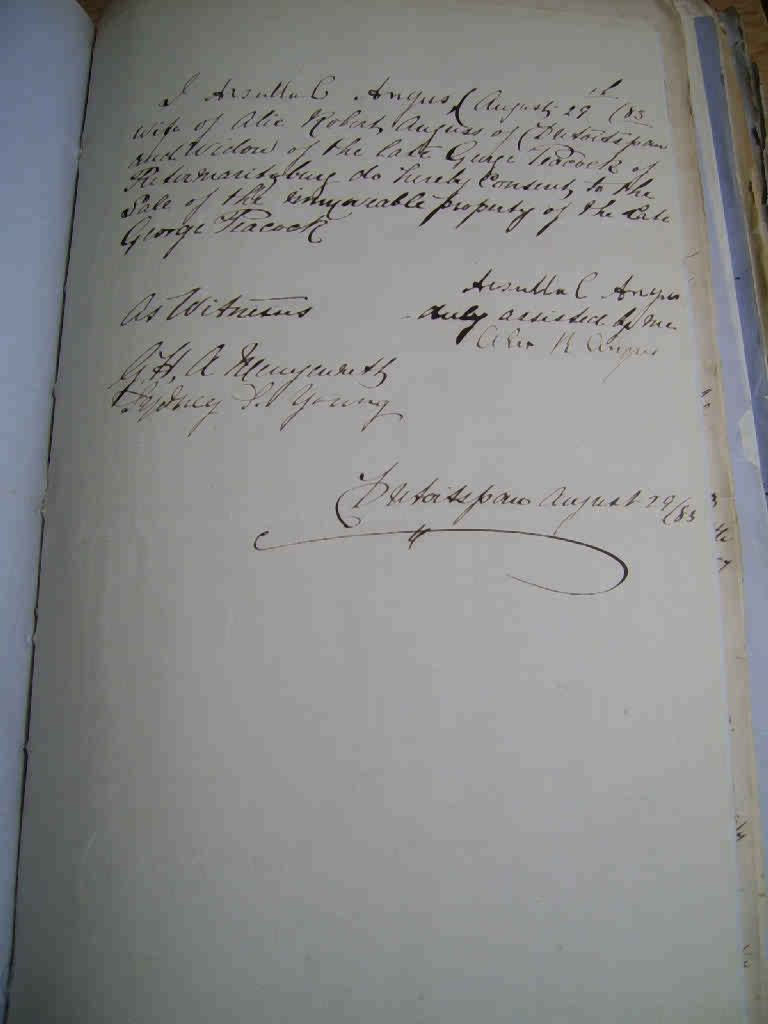 I Arsulla C Angus, August 29th /83
wife of Alix Robert Anguss of Dutoitspan
and Widow of the late George Peacock of
Pietermaritzburg do hereby Consent, to the
Sale of the immovable property of the Late
George Peacock
Arsulla C Angus
As Witnesses
duly assisted by me
Alex R Angus
G. H. A
Sydney S. Young
Dutoitspan August 29/83